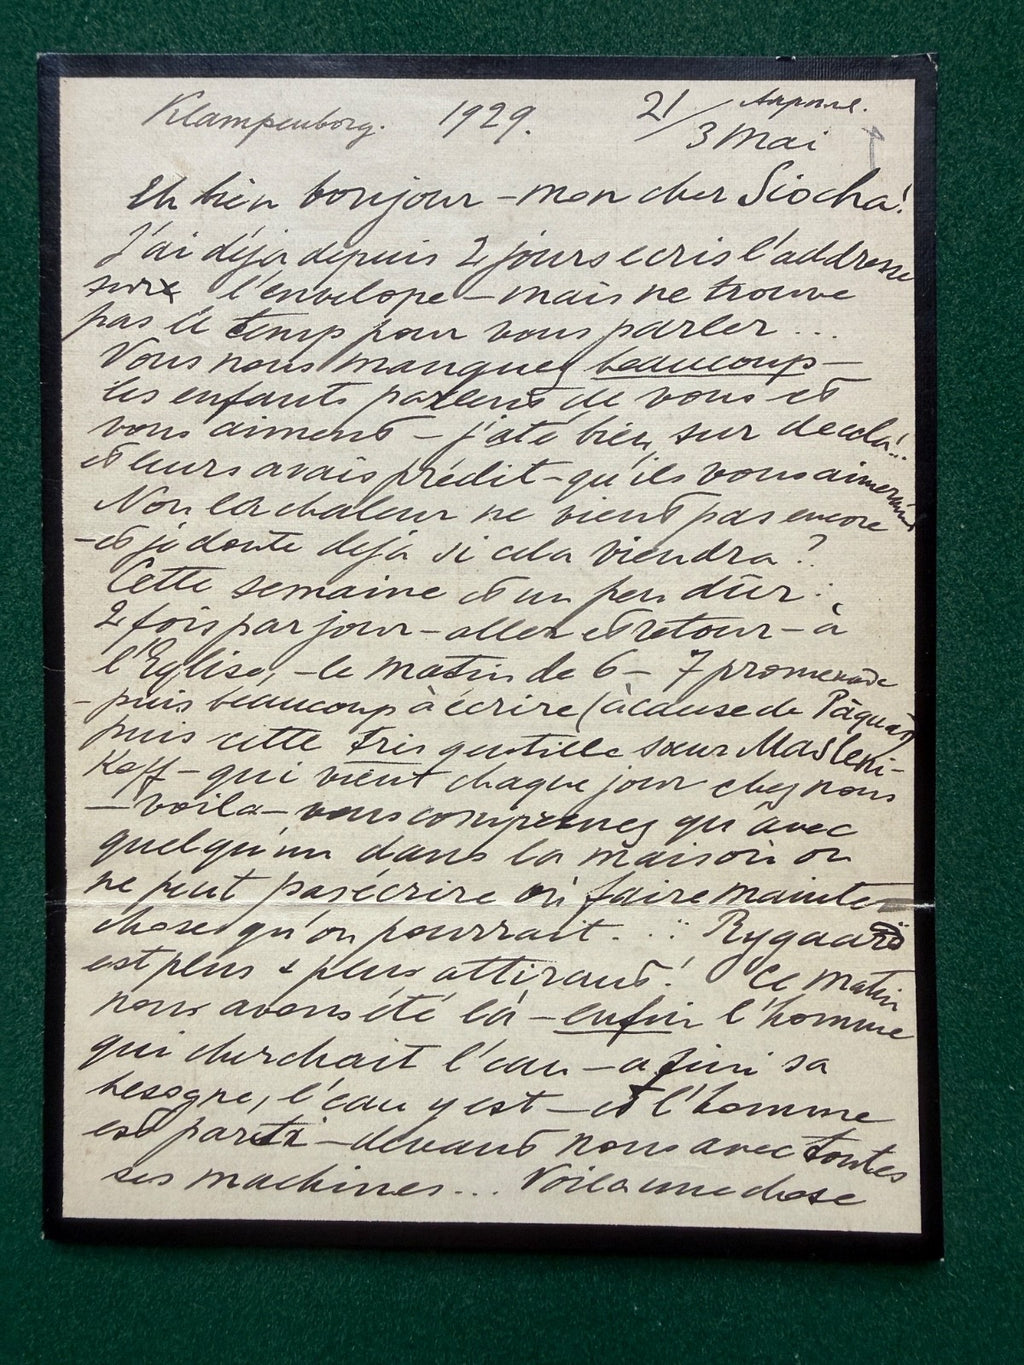 Klampenborg. 1929. 21/3 Апрѣл. Mai
Eh bien bonjour – mon cher Siocha!
J'ai déja depuis 2 jours ecris l'addresse
sur l'envelope – mais ne trouve
pas le temps pour vous parler...
Vous nous manquez beaucoup –
les enfants parlent de vous et
vous aiment – j'ate bien sur de cela!..
et leurs avais prédit – qu'ils vous aimeraient
Non la chaleur ne vient pas encore
– et je doute deja si cela viendra?
Cette semaine et un peu dur:
2 fois par jour – aller et retour – à
l'Eglise, – le matin de 6 – 7 promenade
– puis beaucoup à écrire (à cause de Pâques)
puis cette très gentille sœur Masleni-
koff – qui vient chaque jour chez nous
– voila – vous comprenez qu'avec
quelqu'un dans la maison on
ne peut pas écrire ou faire mainte
chose qu'on pourrait... Rygaard
est plus & plus attirant! Ce matin
nous avons été là – enfin l'homme
qui cherchait l'eau – a fini sa
besogne, l'eau y est – et l'homme
est parti – devant nous avec toutes
ses machines... Voila une chose